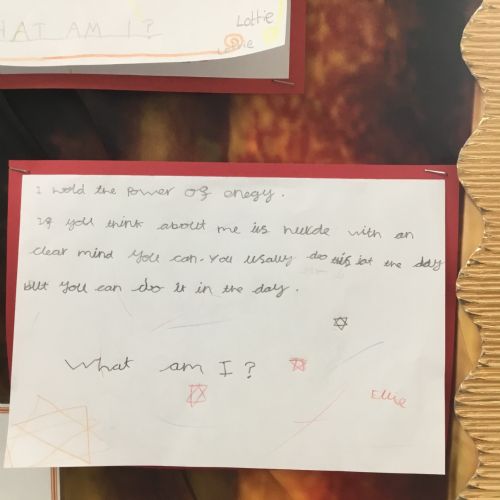 Lottie
HAT AM I?
I hold the Power of enegy.
If you think about me its with an
clear mind you can. You usally do this at the day
but you can do it in the day.
What am I?
Ellie